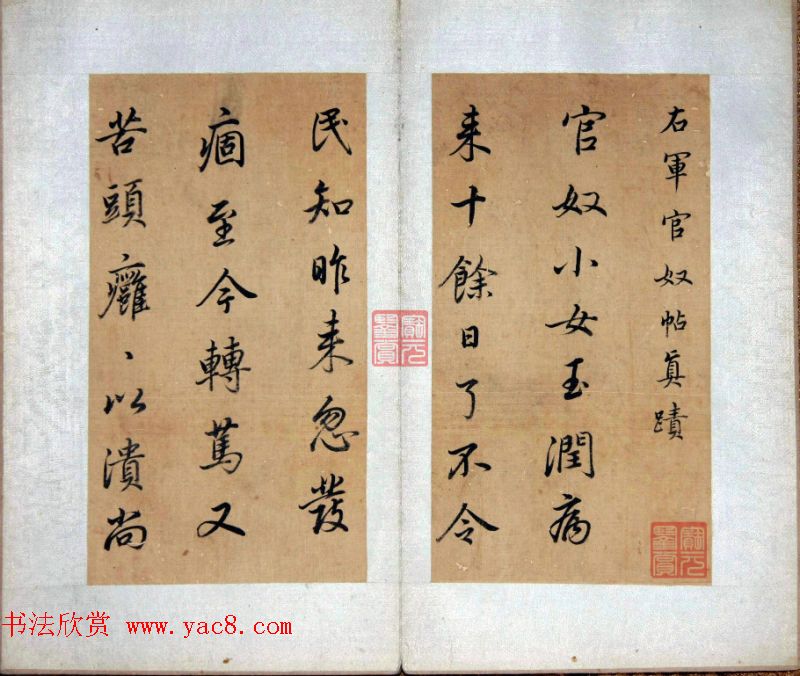 右軍官奴帖真蹟
官奴小女玉潤病
来十餘日了不令
民知昨来忽發
痼至今轉篤又
苦頭癰〻以潰尚
书法欣赏 www.yac8.com